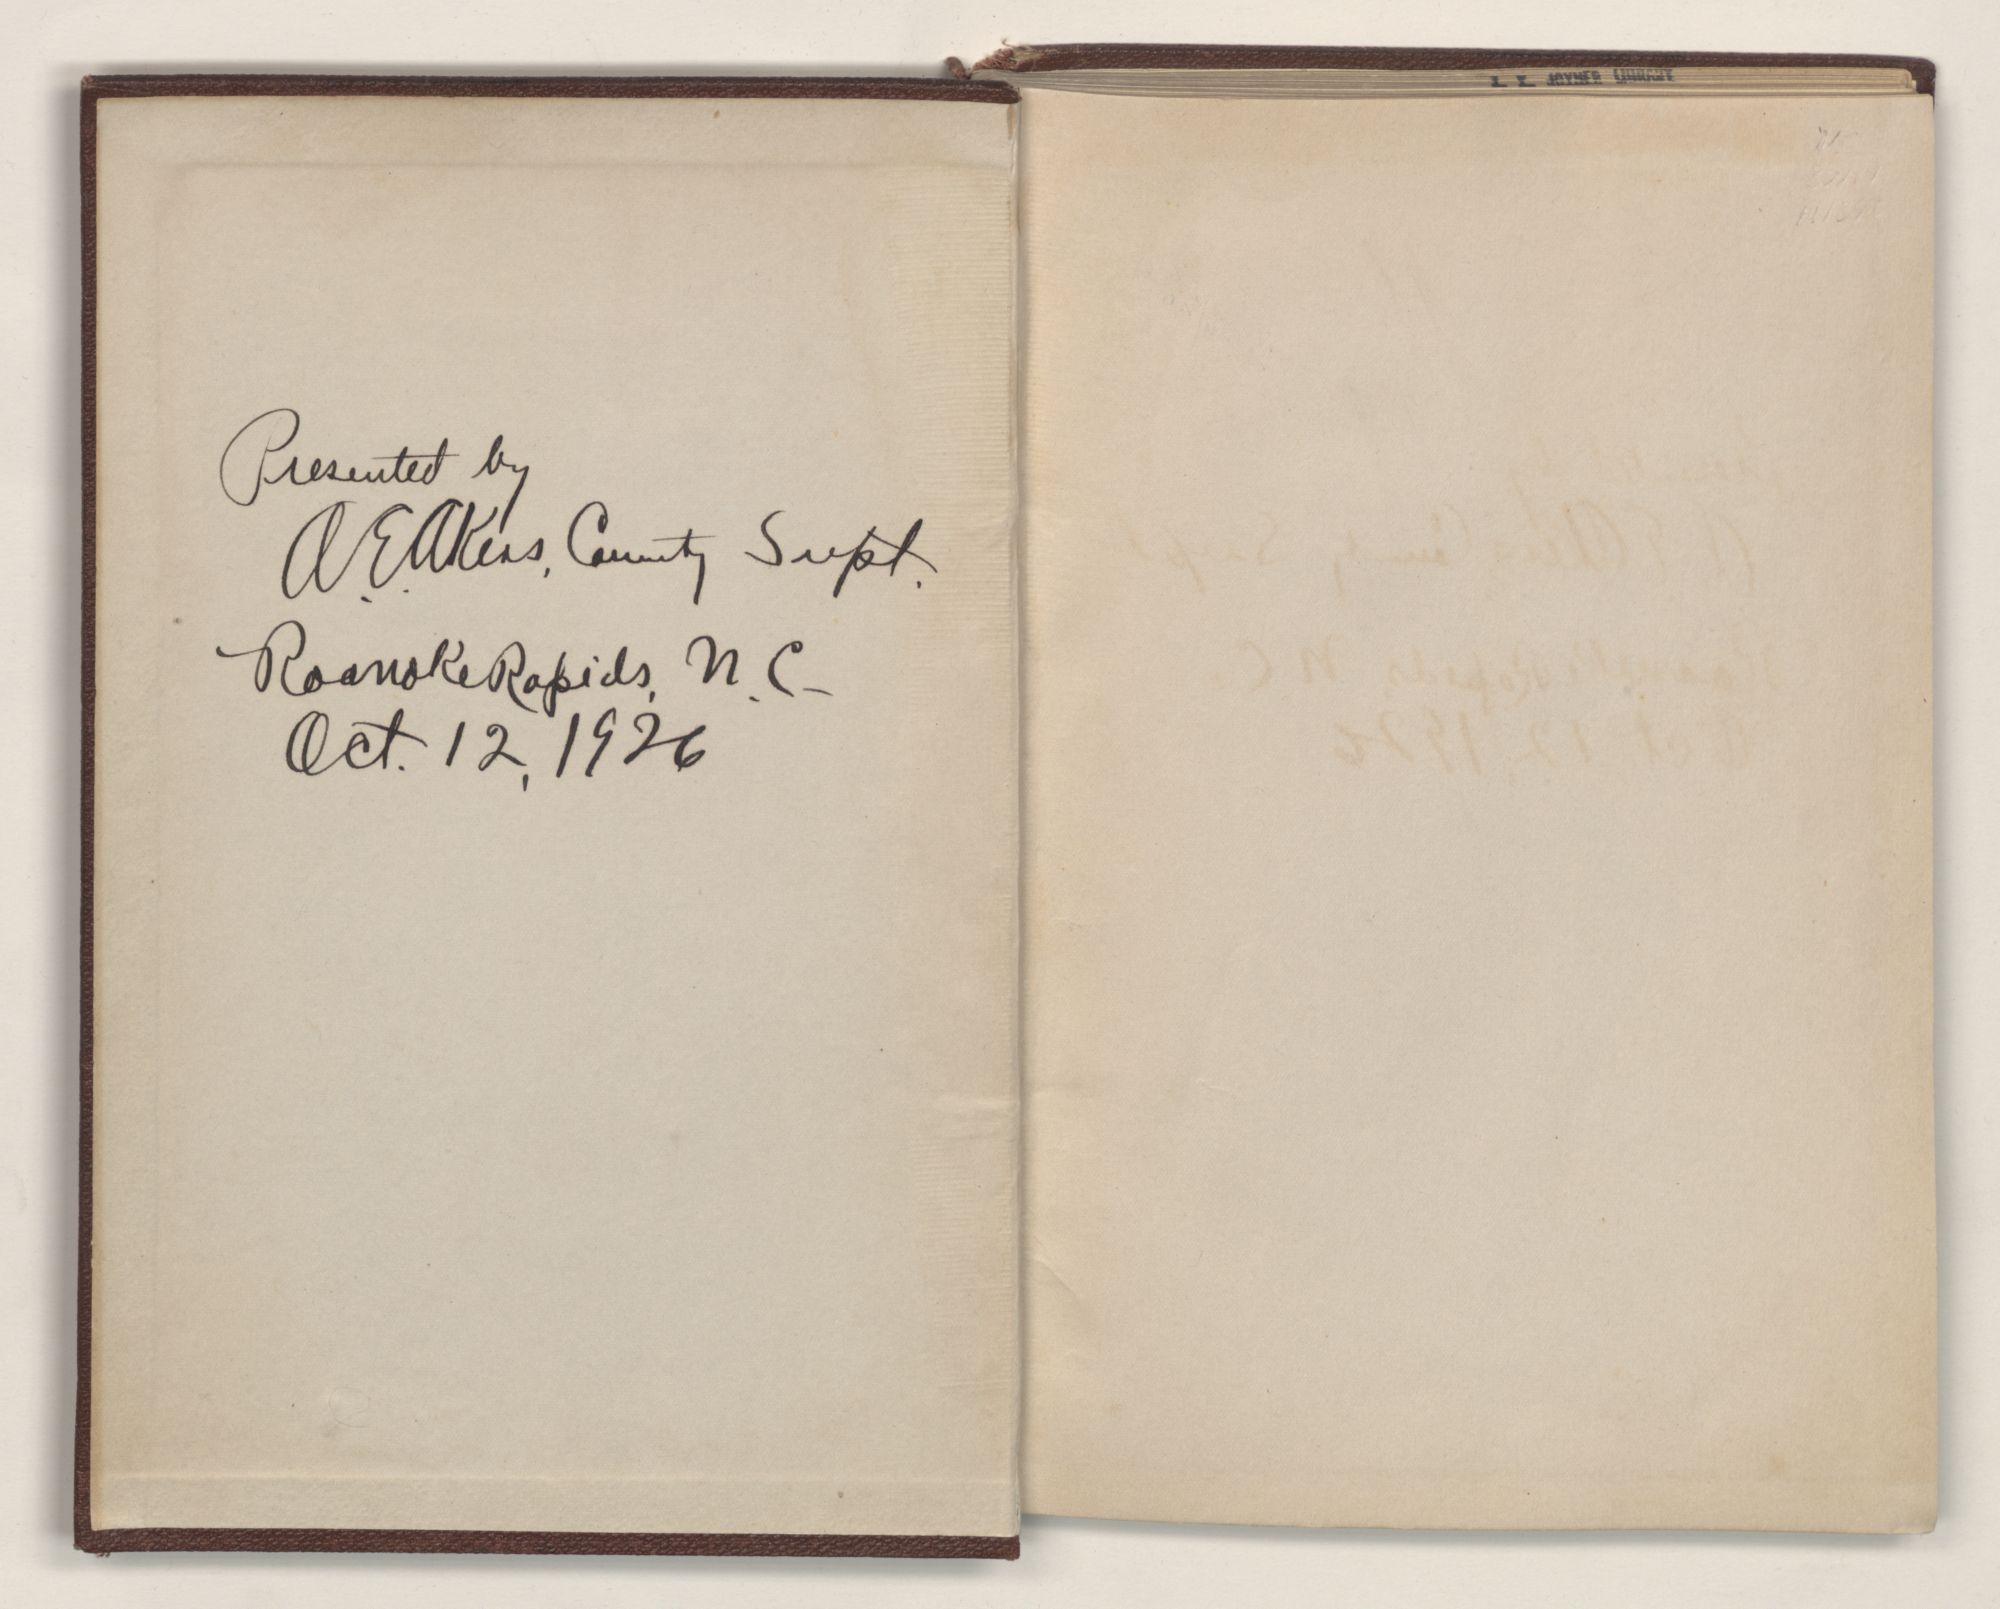 Presented by
A. E. Akers, County Supt.
Roanoke Rapids, N. C.
Oct. 12, 1926
JOYNER LIBRARY